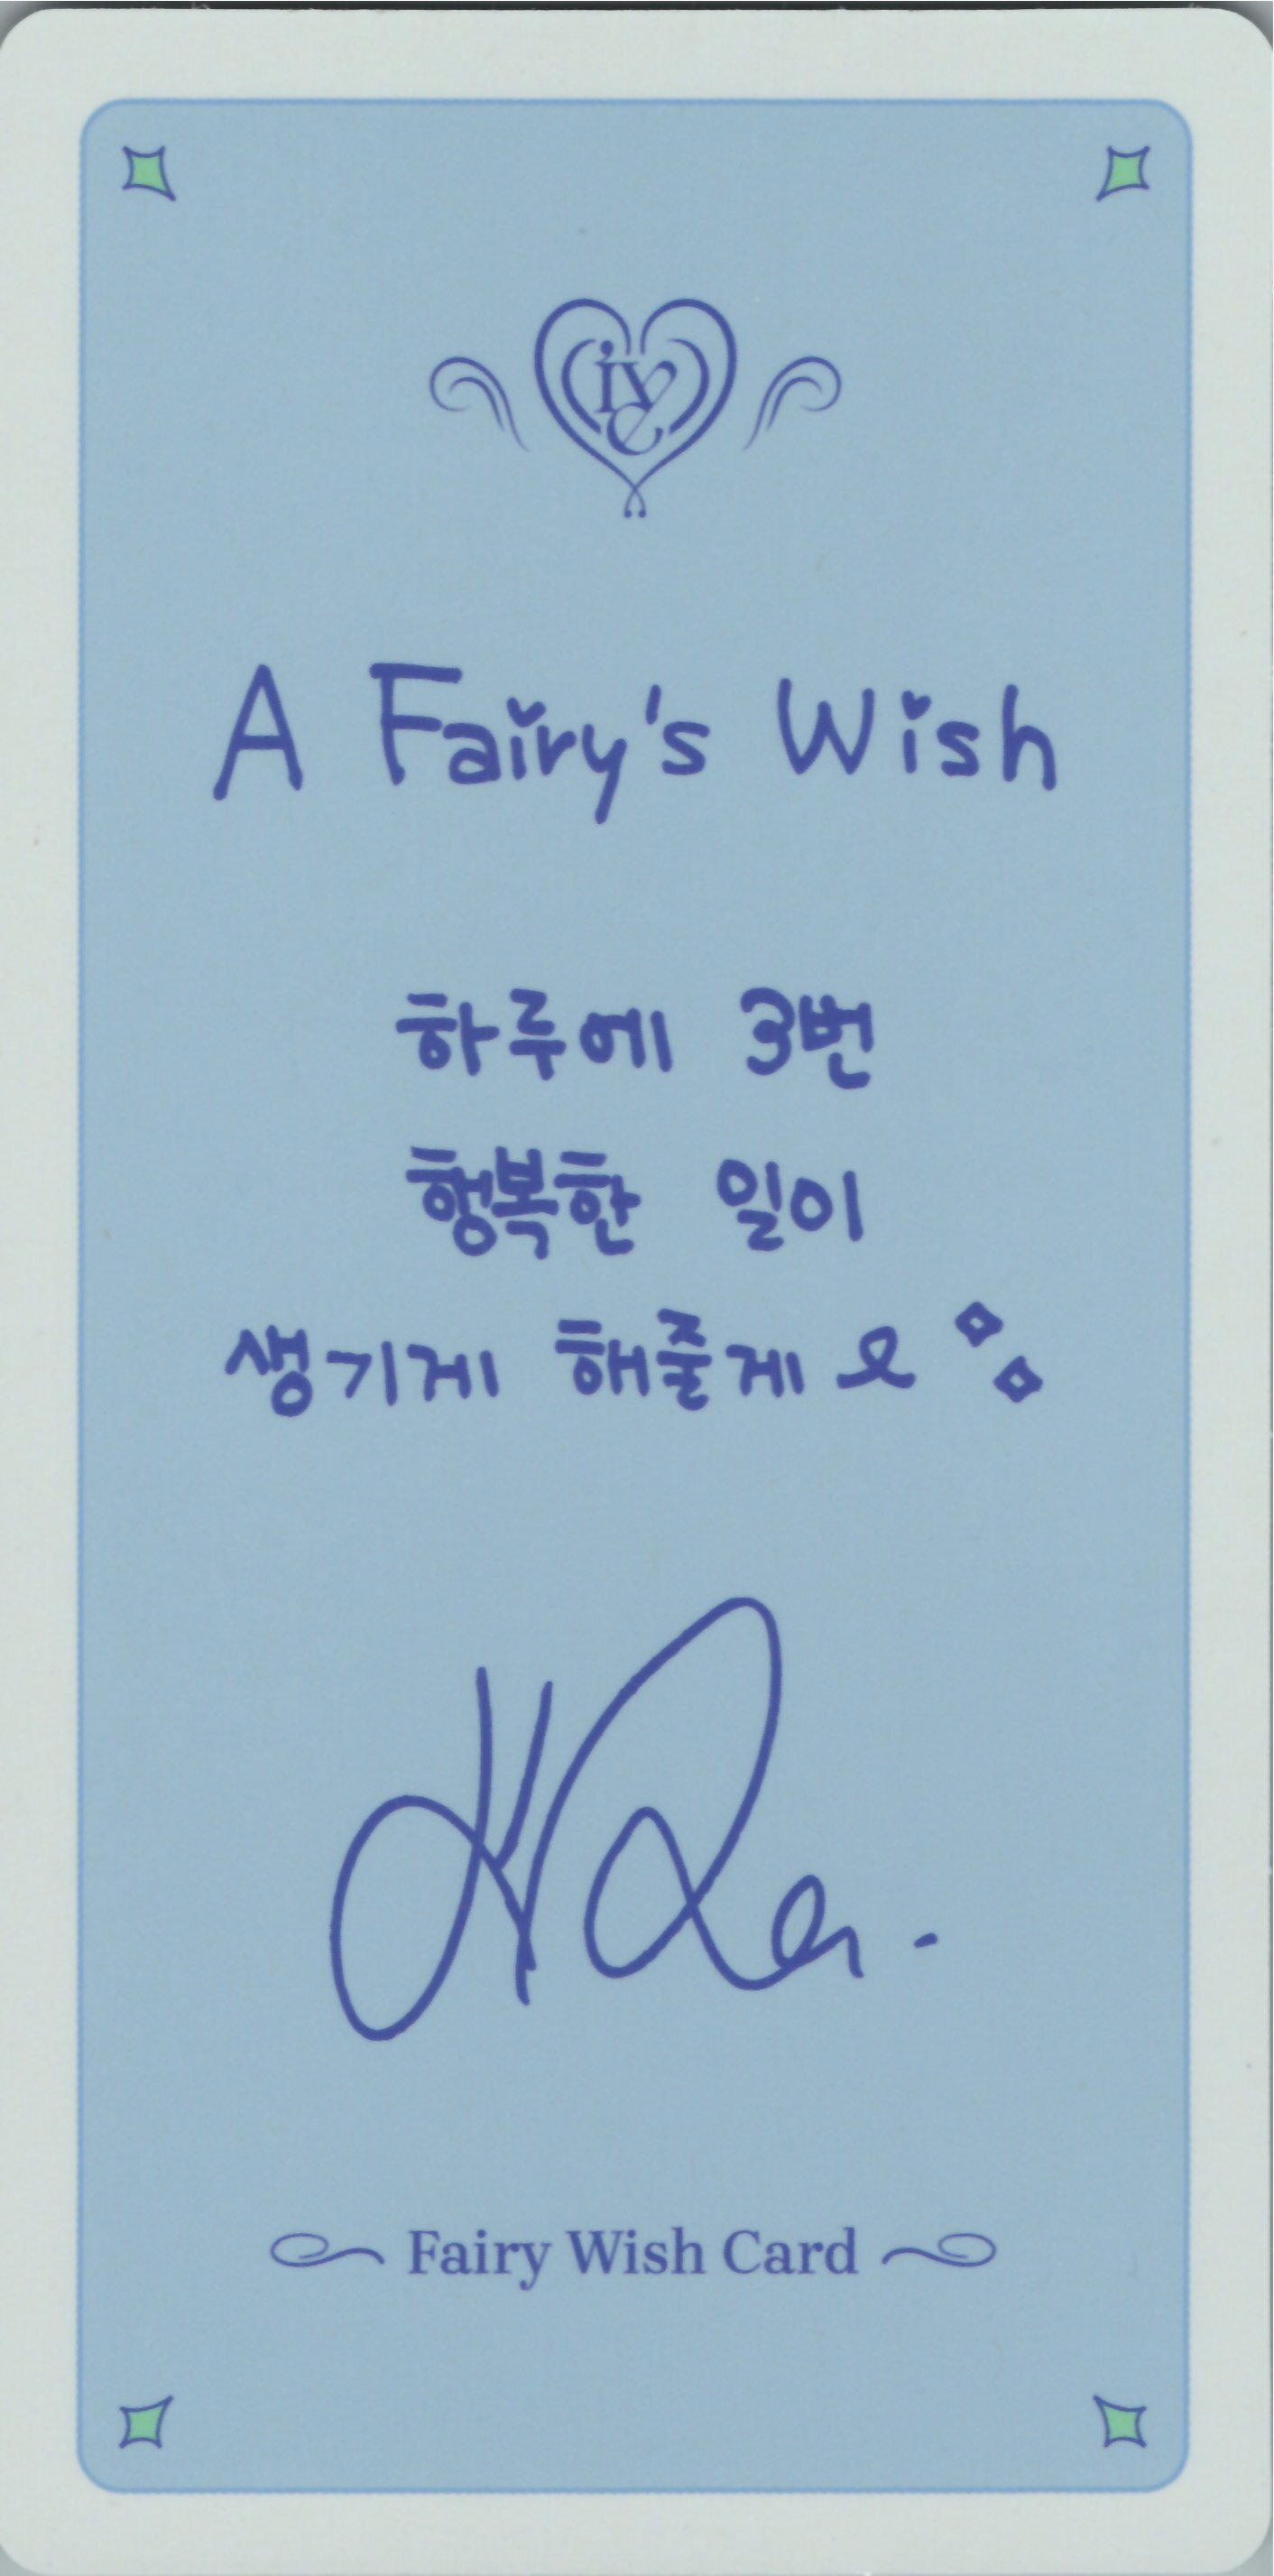 ive
A Fairy's Wish
하루에 3번
행복한 일이
생기게 해줄게
Fairy Wish Card